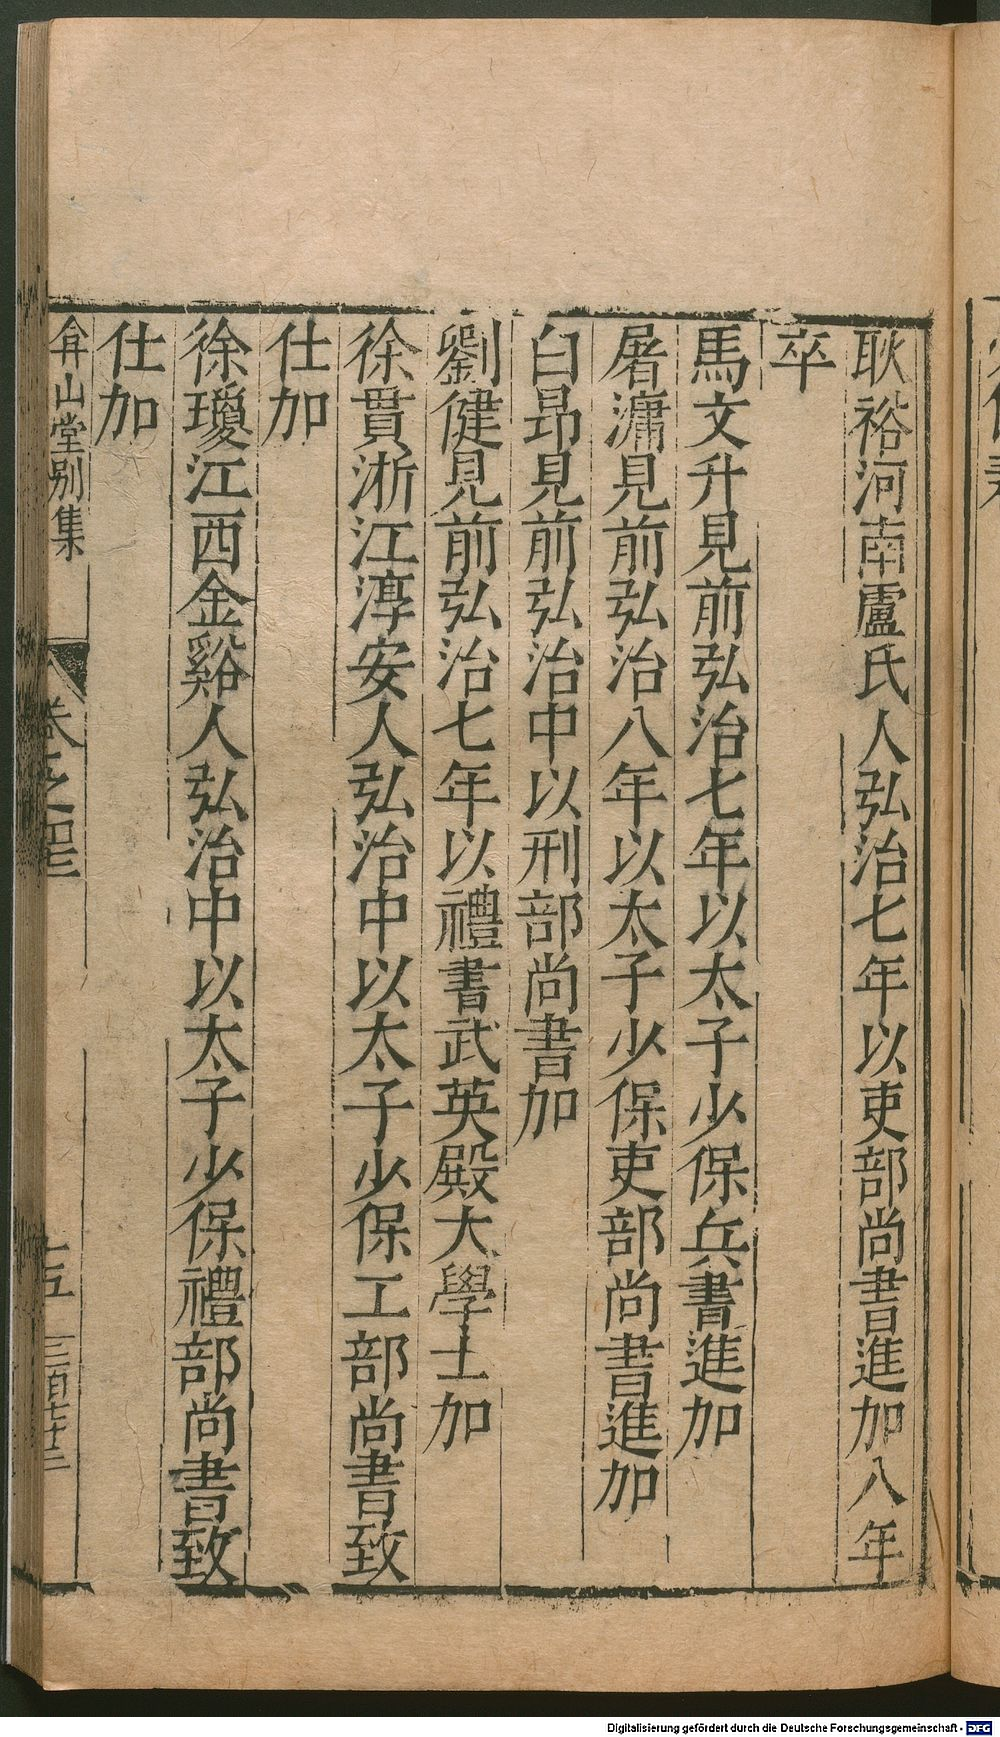 耿裕河南盧氏人弘治七年以吏部尚書進加八年
卒
馬文升見前弘治七年以太子少保兵書進加
屠滽見前弘治八年以太子少保吏部尚書進加
白昂見前弘治中以刑部尚書加
劉健見前弘治七年以禮書武英殿大學士加
徐貫淅江淳安人弘治中以太子少保工部尚書致
仕加
徐瓊江西金谿人弘治中以太子少保禮部尚書致
仕加
弇山堂別集
卷之四
十五
Digitalisierung gefördert durch die Deutsche Forschungsgemeinschaft - DFG